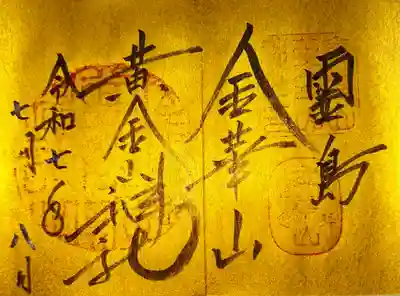 霊島
金華山
黄金山神社
令和七年
七月八日